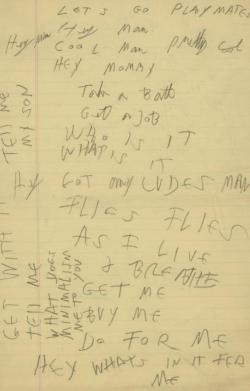 LET'S GO PLAYMATES
Hey man Hey Man
COOL Man Pretty Cool
HEY MOMMY
Take a Bath
Get a Job
WHO IS IT
WHAT IS IT
Hey GOT my UDES MAN
FLIES FLIES
AS I LIVE
& BREATHE
GET ME
BUY ME
DO FOR ME
HEY WHATS IN IT FER
ME
TELL ME
MY SON
GET WITH IT
TELL ME
WHAT DOES
MINIMALISM
MEAN TO YOU